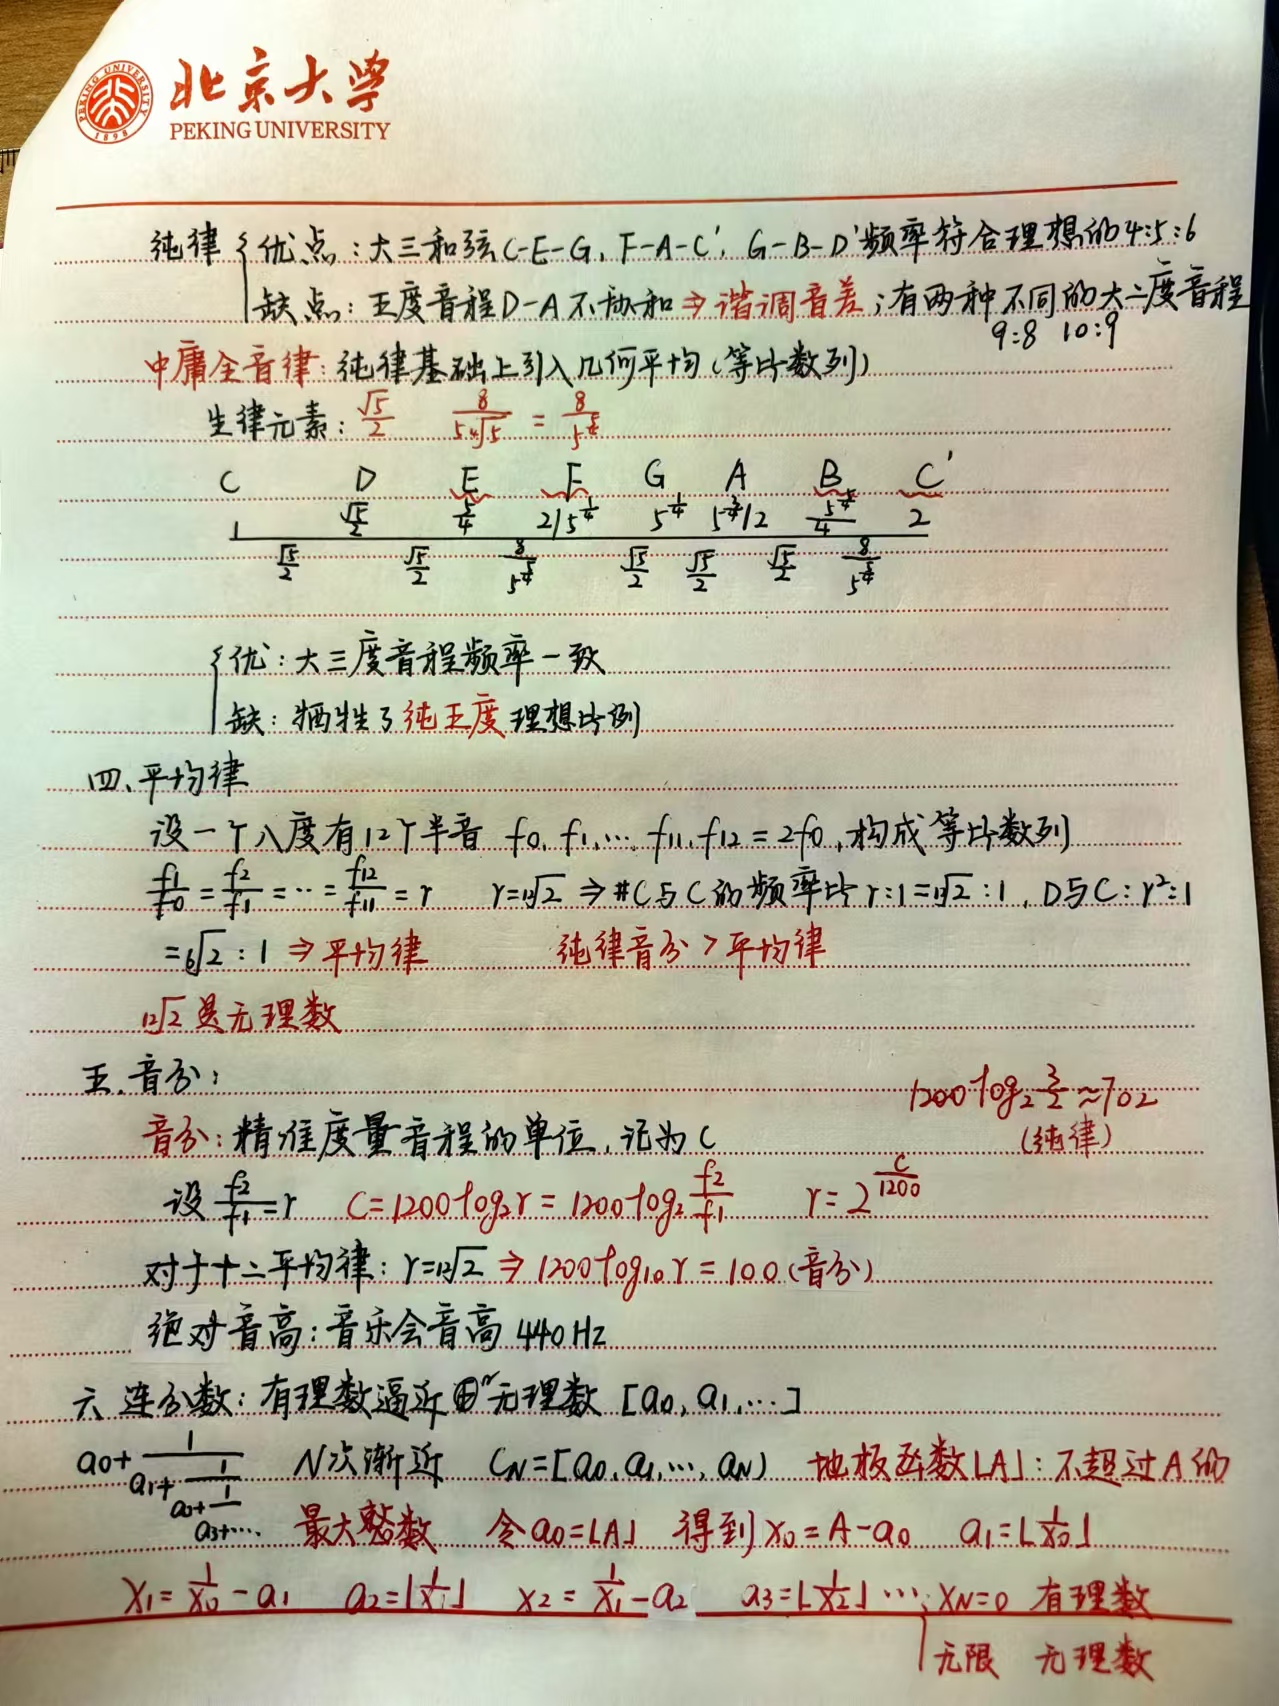 北京大学
PEKING UNIVERSITY
PEKING UNIVERSITY
1898
纯律 { 优点：大三和弦C-E-G, F-A-C', G-B-D'频率符合理想的4:5:6
缺点：五度音程D-A不协和⇒谐调音差；有两种不同的大二度音程
9:8 10:9
中庸全音律：纯律基础上引入几何平均(等比数列)
生律元素：√5/2 8/(5 ∜5) = 8/5^(5/4)
C D E F G A B C'
1 √5/2 5/4 2/5^(1/4) 5^(1/4) 5^(3/4)/2 5^(5/4)/4 2
√5/2 √5/2 8/5^(5/4) √5/2 √5/2 √5/2 8/5^(5/4)
{ 优：大三度音程频率一致
缺：牺牲了纯五度理想比例
四、平均律
设一个八度有12个半音 f0, f1, … f11, f12 = 2f0, 构成等比数列
f1/f0 = f2/f1 = … = f12/f11 = r r = 12√2 ⇒ #C与C的频率比 r:1 = 12√2 : 1, D与C: r²:1
= 6√2 : 1 ⇒ 平均律 纯律音分 > 平均律
12√2 是无理数
五、音分：
1200 log₂ 3/2 ≈ 702
(纯律)
音分：精准度量音程的单位, 记为C
设 f2/f1 = r C = 1200 log₂ r = 1200 log₂ f2/f1 r = 2^(C/1200)
对于十二平均律：r = 12√2 ⇒ 1200 log₁₀ r = 100 (音分)
绝对音高：音乐会音高 440Hz
六、连分数：有理数逼近无理数 [a0, a1, …]
a0 + 1/(a1 + 1/(a2 + 1/(a3 + …))) N次渐近 CN = [a0, a1, …, aN) 地板函数⌊A⌋：不超过A的
最大整数 令a0 = ⌊A⌋ 得到 x0 = A - a0 a1 = ⌊1/x0⌋
x1 = 1/x0 - a1 a2 = ⌊1/x1⌋ x2 = 1/x1 - a2 a3 = ⌊1/x2⌋ … { xN = 0 有理数
无限 无理数